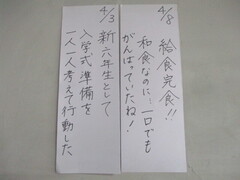 4/8
給食完食!!
和食なのに…一口でも
がんばっていたね!
4/3
新六年生として
入学式準備を
一人一人考えて行動した